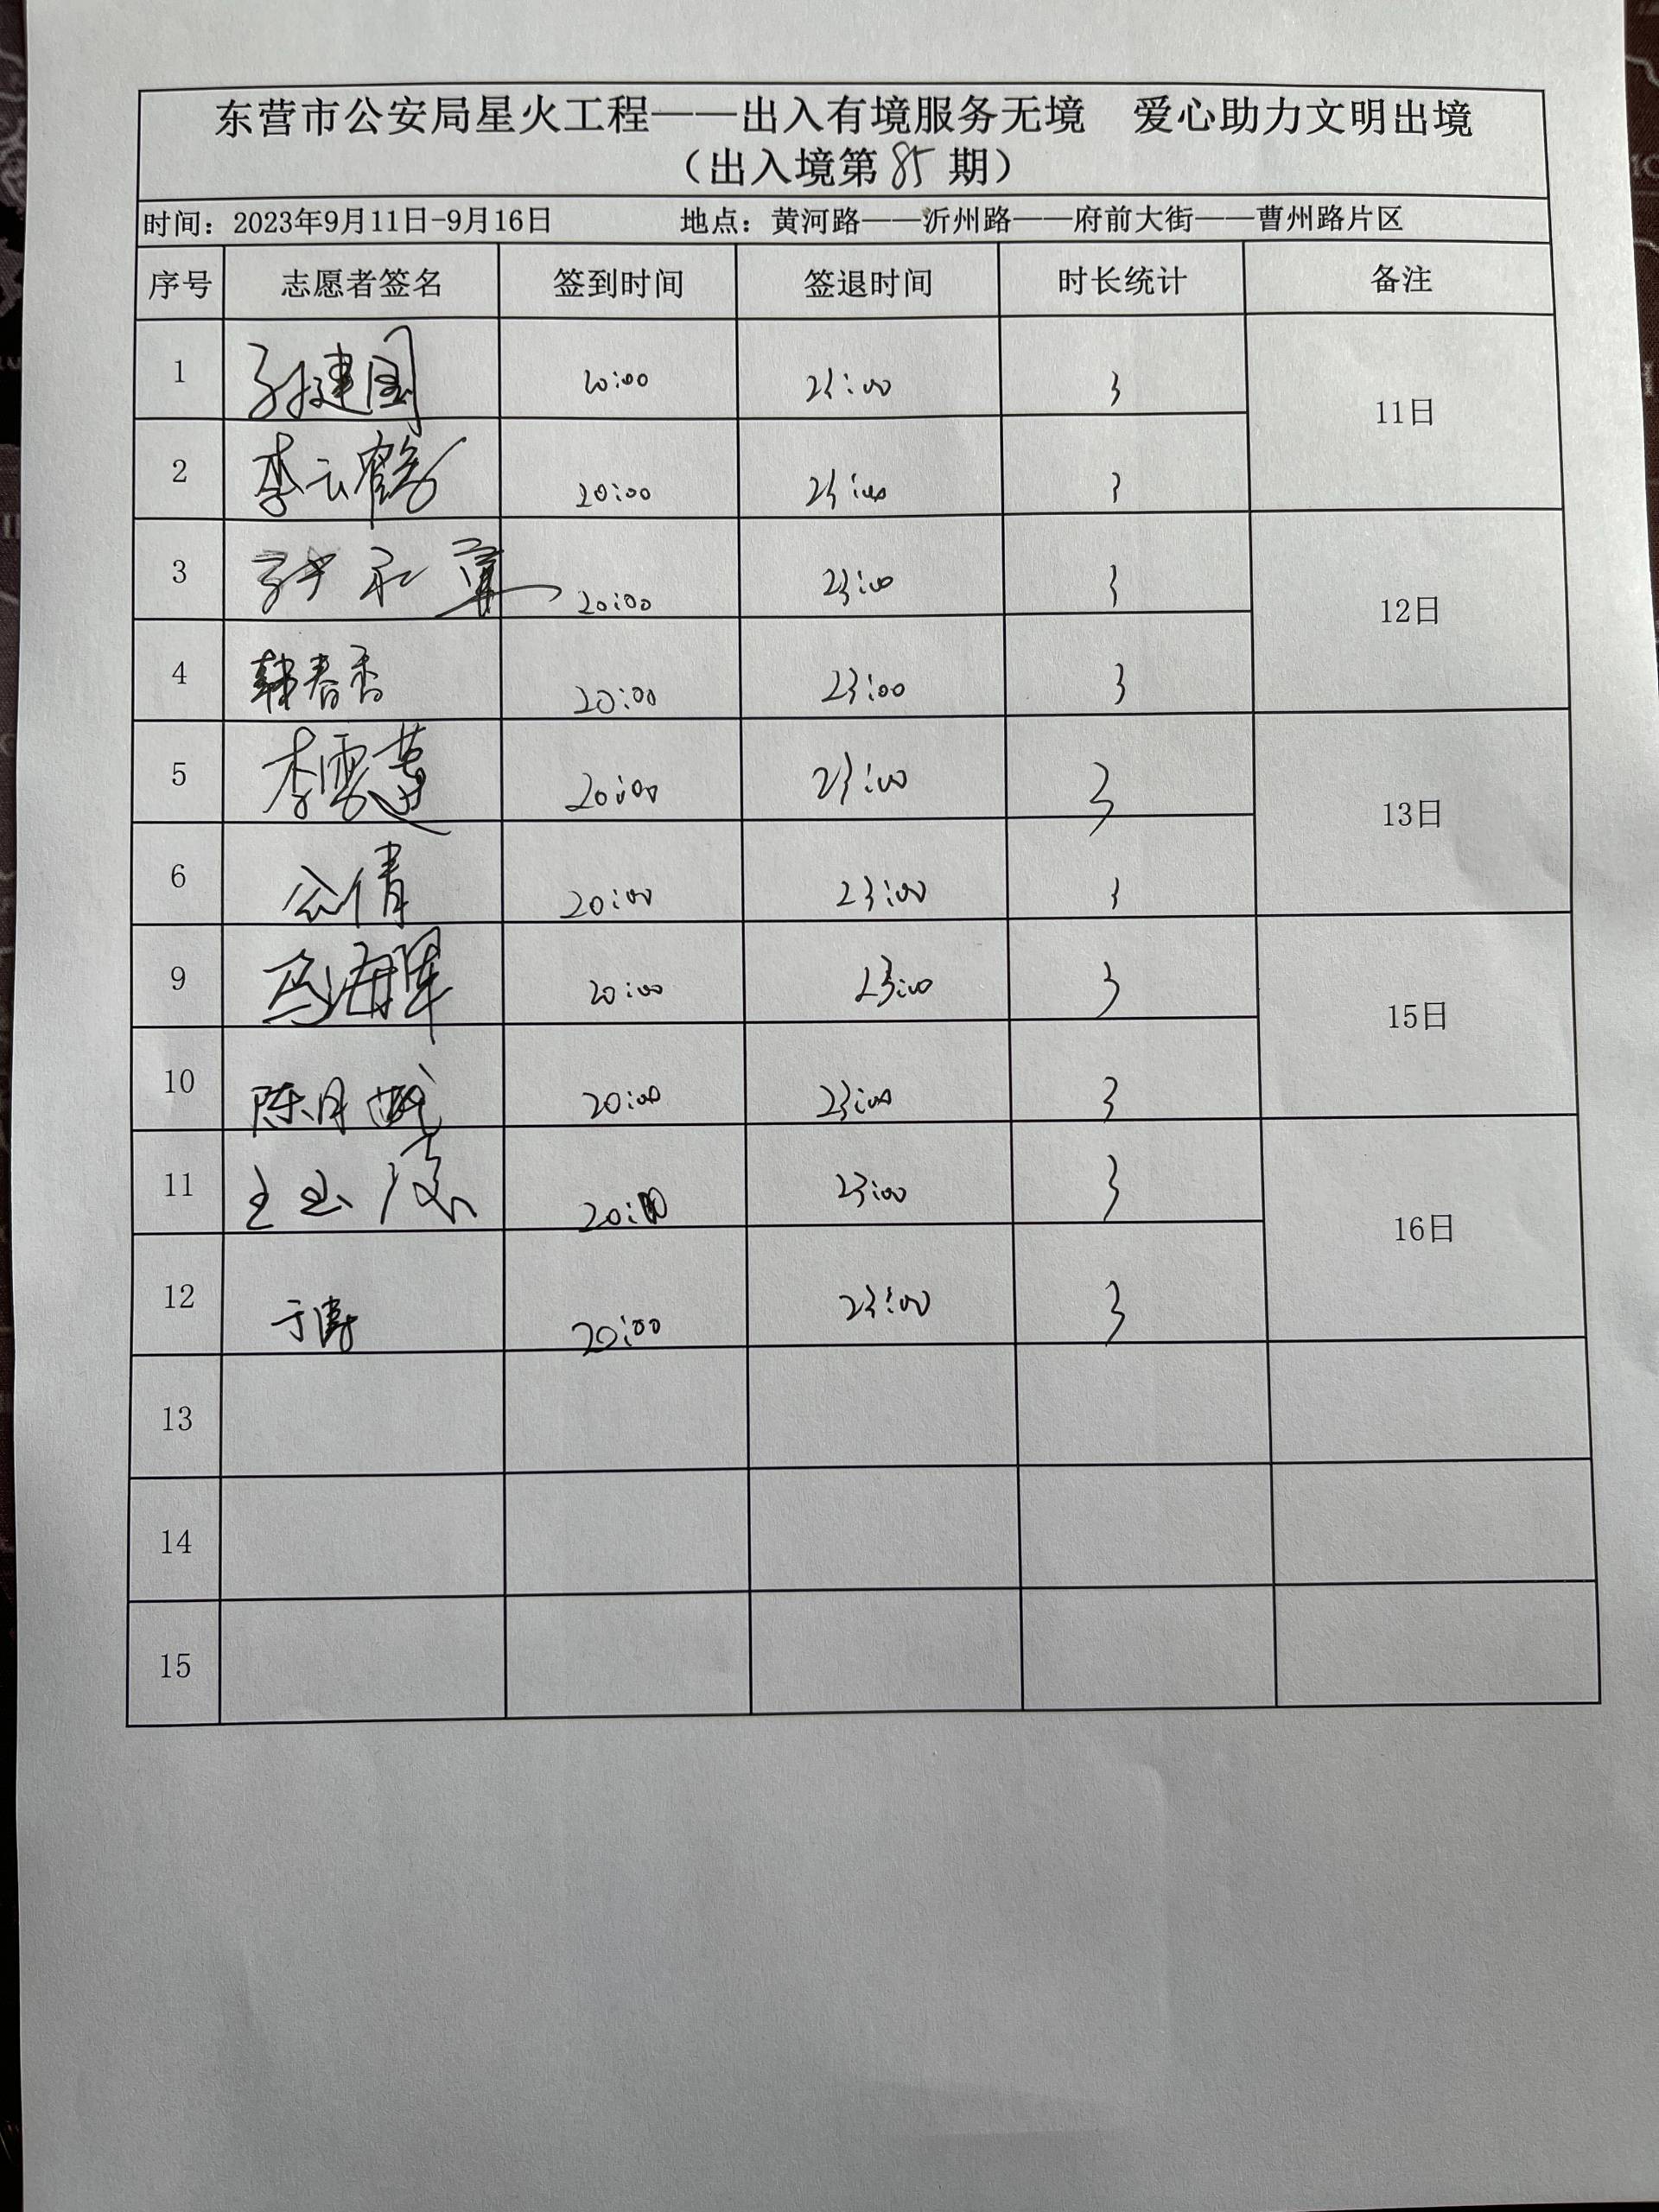 东营市公安局星火工程——出入有境服务无境 爱心助力文明出境
（出入境第85期）
时间：2023年9月11日-9月16日 地点：黄河路——沂州路——府前大街——曹州路片区
序号 志愿者签名 签到时间 签退时间 时长统计 备注
1 孙建国 20:00 23:00 3 11日
2 李云鹤 20:00 23:00 3
3 20:00 23:00 3 12日
4 韩春香 20:00 23:00 3
5 李雪莲 20:00 23:00 3 13日
6 倩 20:00 23:00 3
9 马海军 20:00 23:00 3 15日
10 陈月 20:00 23:00 3
11 王玉 20:00 23:00 3 16日
12 于涛 20:00 23:00 3
13
14
15